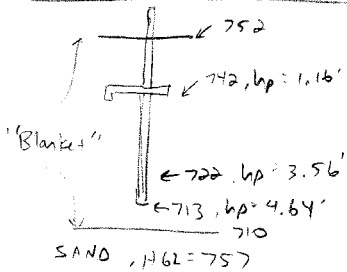 752
742, hp = 1.16'
"Blanket"
722, hp = 3.56'
713, hp = 4.64'
710
SAND, H62 = 757